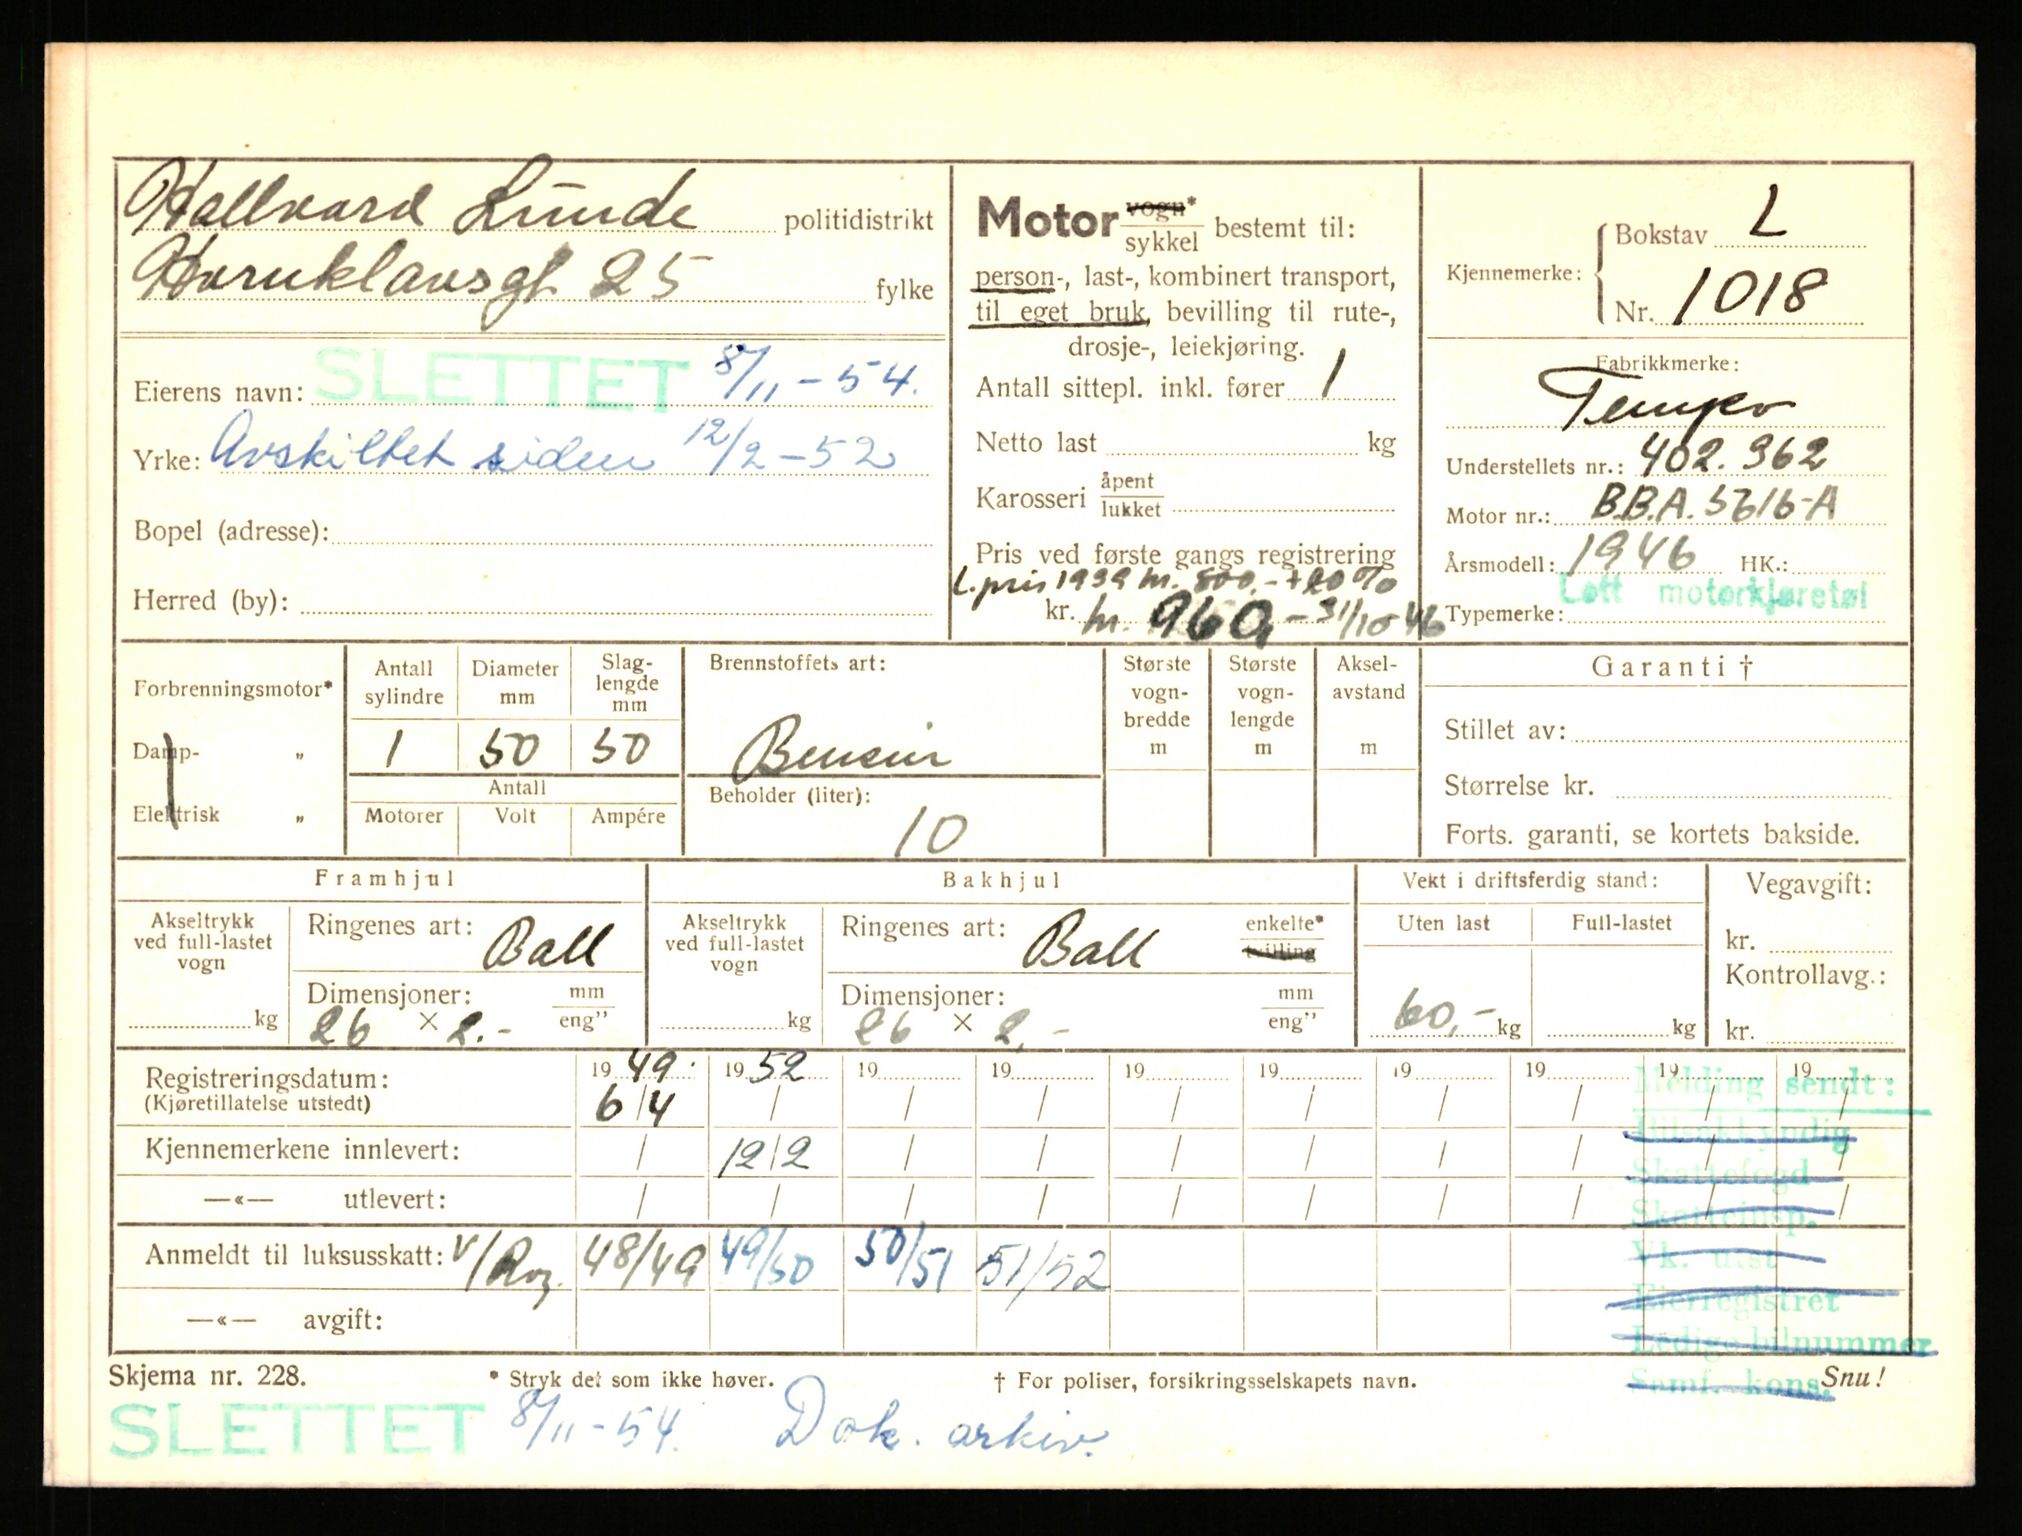 Hallvard Lunde politidistrikt
Hornklavsgt 25 fylke
Eierens navn: SLETTET 8/11-54.
Yrke: Avskiltet siden 12/2-52
Bopel (adresse):
Herred (by):
Motor vogn* sykkel bestemt til:
person-, last-, kombinert transport,
til eget bruk, bevilling til rute-,
drosje-, leiekjøring.
Antall sittepl. inkl. fører 1
Netto last kg
Karosseri åpent lukket
Pris ved første gangs registrering
L.pris 1939 kr. 800.- +20%
kr. kr. 960,- 31/10-46
Kjennemerke: Bokstav L
Nr. 1018
Fabrikkmerke:
Tempo
Understellets nr.: 402.362
Motor nr.: B.B.A. 5616-A
Årsmodell: 1946 HK.:
Lett motorkjøretøi
Typemerke:
Forbrenningsmotor*
Damp- „
Elektrisk „
Antall sylindre Diameter mm Slag-lengde mm
1 50 50
Antall
Motorer Volt Ampére
Brennstoffets art:
Bensin
Beholder (liter):
10
Største vogn-bredde m
Største vogn-lengde m
Aksel-avstand m
Garanti †
Stillet av:
Størrelse kr.
Forts. garanti, se kortets bakside.
Framhjul
Akseltrykk ved full-lastet vogn kg
Ringenes art: Ball
Dimensjoner: mm eng"
26 × 2.-
Bakhjul
Akseltrykk ved full-lastet vogn kg
Ringenes art: Ball enkelte* tvilling
Dimensjoner: mm eng"
26 × 2,-
Vekt i driftsferdig stand:
Uten last Full-lastet
60,- kg kg
Vegavgift:
kr.
Kontrollavg.:
kr.
Registreringsdatum: 19 49. 19 52 19 19 19 19 19 19 19 19
(Kjøretillatelse utstedt) 6/4 / / / / / / / / /
Kjennemerkene innlevert: / 12/2 / / / / / /
—«— utlevert: / / / / / / / / / /
Anmeldt til luksusskatt: 48/49 49/50 50/51 51/52
—«— avgift:
Melding sendt:
Bilsakkyndig
Skattefogd
Skatteinsp.
Vk. utst
Eierregistret
Ledige bilnummer
Samf. kons.
Skjema nr. 228. * Stryk det som ikke høver. † For poliser, forsikringsselskapets navn. Snu!
SLETTET 8/11-54. Dok. arkiv.